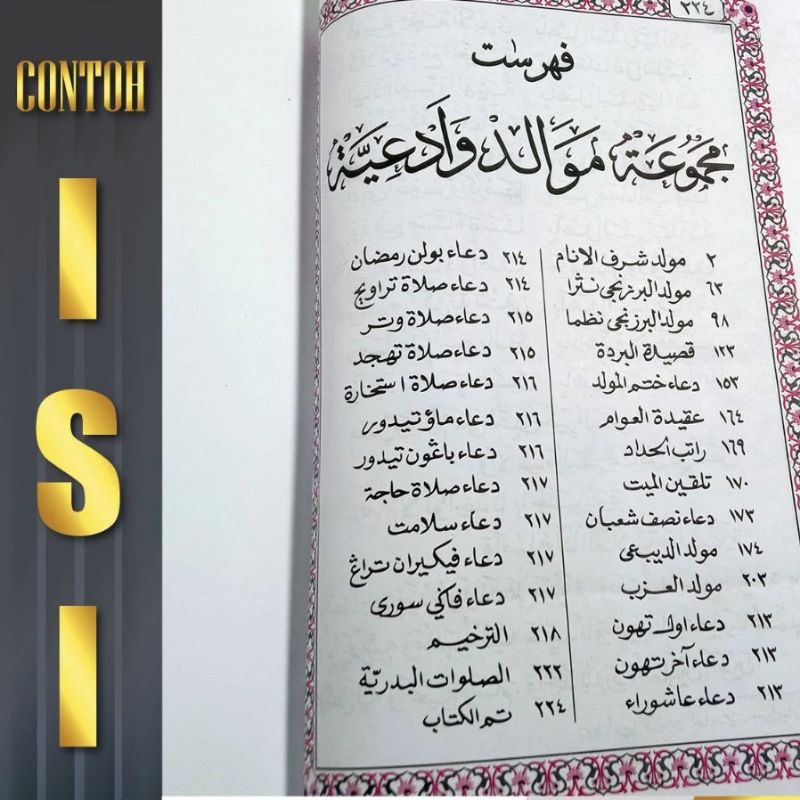 CONTOH
I
S
I
٢٢٤
فهرست
مجموعة موالد وأدعية
٢ مولد شرف الانام
٦٣ مولد البرزنجى نثرا
٩٨ مولد البرزنجى نظما
١٢٣ قصيدة البردة
١٥٣ دعاء ختم المولد
١٦٤ عقيدة العوام
١٦٩ راتب الحداد
١٧٠ تلقين الميت
١٧٣ دعاء نصف شعبان
١٧٤ مولد الديبعى
٢٠٣ مولد العزب
٢١٣ دعاء اول تهون
٢١٣ دعاء آخر تهون
٢١٣ دعاء عاشوراء
٢١٤ دعاء بولن رمضان
٢١٤ دعاء صلاة تراويح
٢١٥ دعاء صلاة وتر
٢١٥ دعاء صلاة تهجد
٢١٦ دعاء صلاة استخارة
٢١٦ دعاء ماؤ تيدور
٢١٦ دعاء باڠون تيدور
٢١٧ دعاء صلاة حاجة
٢١٧ دعاء سلامت
٢١٧ دعاء فيكيران تراڠ
٢١٧ دعاء فاكي سورى
٢١٨ الترخيم
٢٢٢ الصلوات البدرية
٢٢٤ تم الكتاب